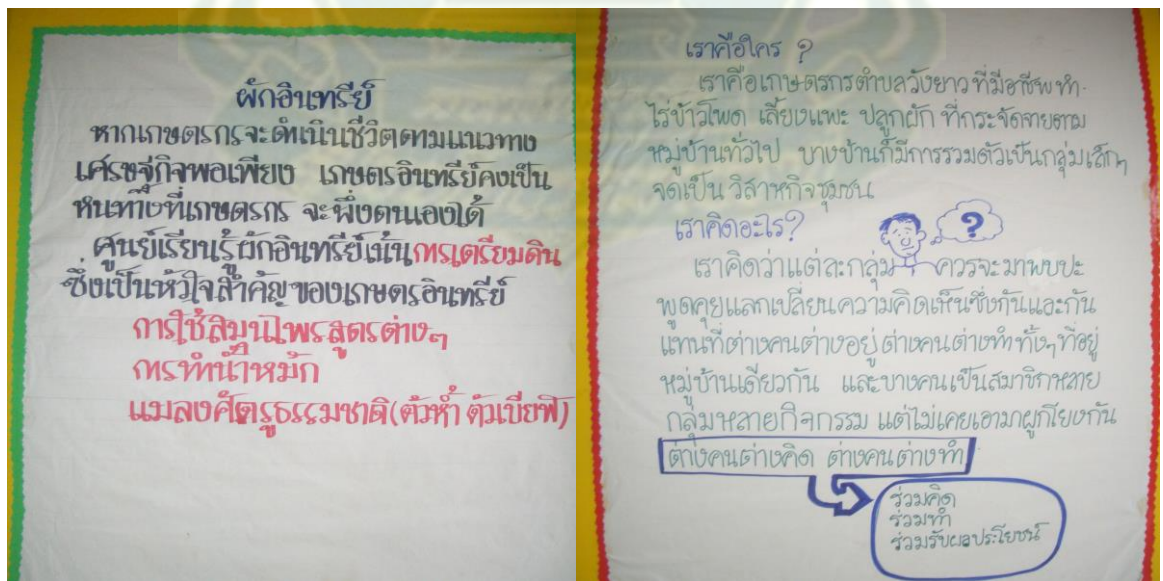 ผักอินทรีย์
หากเกษตรกรจะดำเนินชีวิตตามแนวทาง
เศรษฐกิจพอเพียง เกษตรอินทรีย์คงเป็น
หนทางที่เกษตรกร จะพึ่งตนเองได้
ศูนย์เรียนรู้ผักอินทรีย์เน้นการเตรียมดิน
ซึ่งเป็นหัวใจสำคัญของเกษตรอินทรีย์
การใช้สมุนไพรสูตรต่างๆ
การทำน้ำหมัก
แมลงศัตรูธรรมชาติ(ตัวห้ำ ตัวเบียฬ)
เราคือใคร ?
เราคือเกษตรกรตำบลวังยาว ที่มีอาชีพ ทำ
ไร่ข้าวโพด เลี้ยงแพะ ปลูกผัก ที่กระจัดกระจายตาม
หมู่บ้านทั่วไป บางบ้านก็มีการรวมตัวเป็นกลุ่มเล็กๆ
จดเป็น วิสาหกิจชุมชน
เราคิดอะไร?
?
เราคิดว่าแต่ละกลุ่ม ควรจะมาพบปะ
พูดคุยแลกเปลี่ยนความคิดเห็นซึ่งกันและกัน
แทนที่ต่างคนต่างอยู่ ต่างคนต่างทำ ทั้งๆ ที่อยู่
หมู่บ้านเดียวกัน และบางคนเป็นสมาชิกหลาย
กลุ่มหลายกิจกรรม แต่ไม่เคยเอามาผูกโยงกัน
ต่างคนต่างคิด ต่างคนต่างทำ
ร่วมคิด
ร่วมทำ
ร่วมรับผลประโยชน์